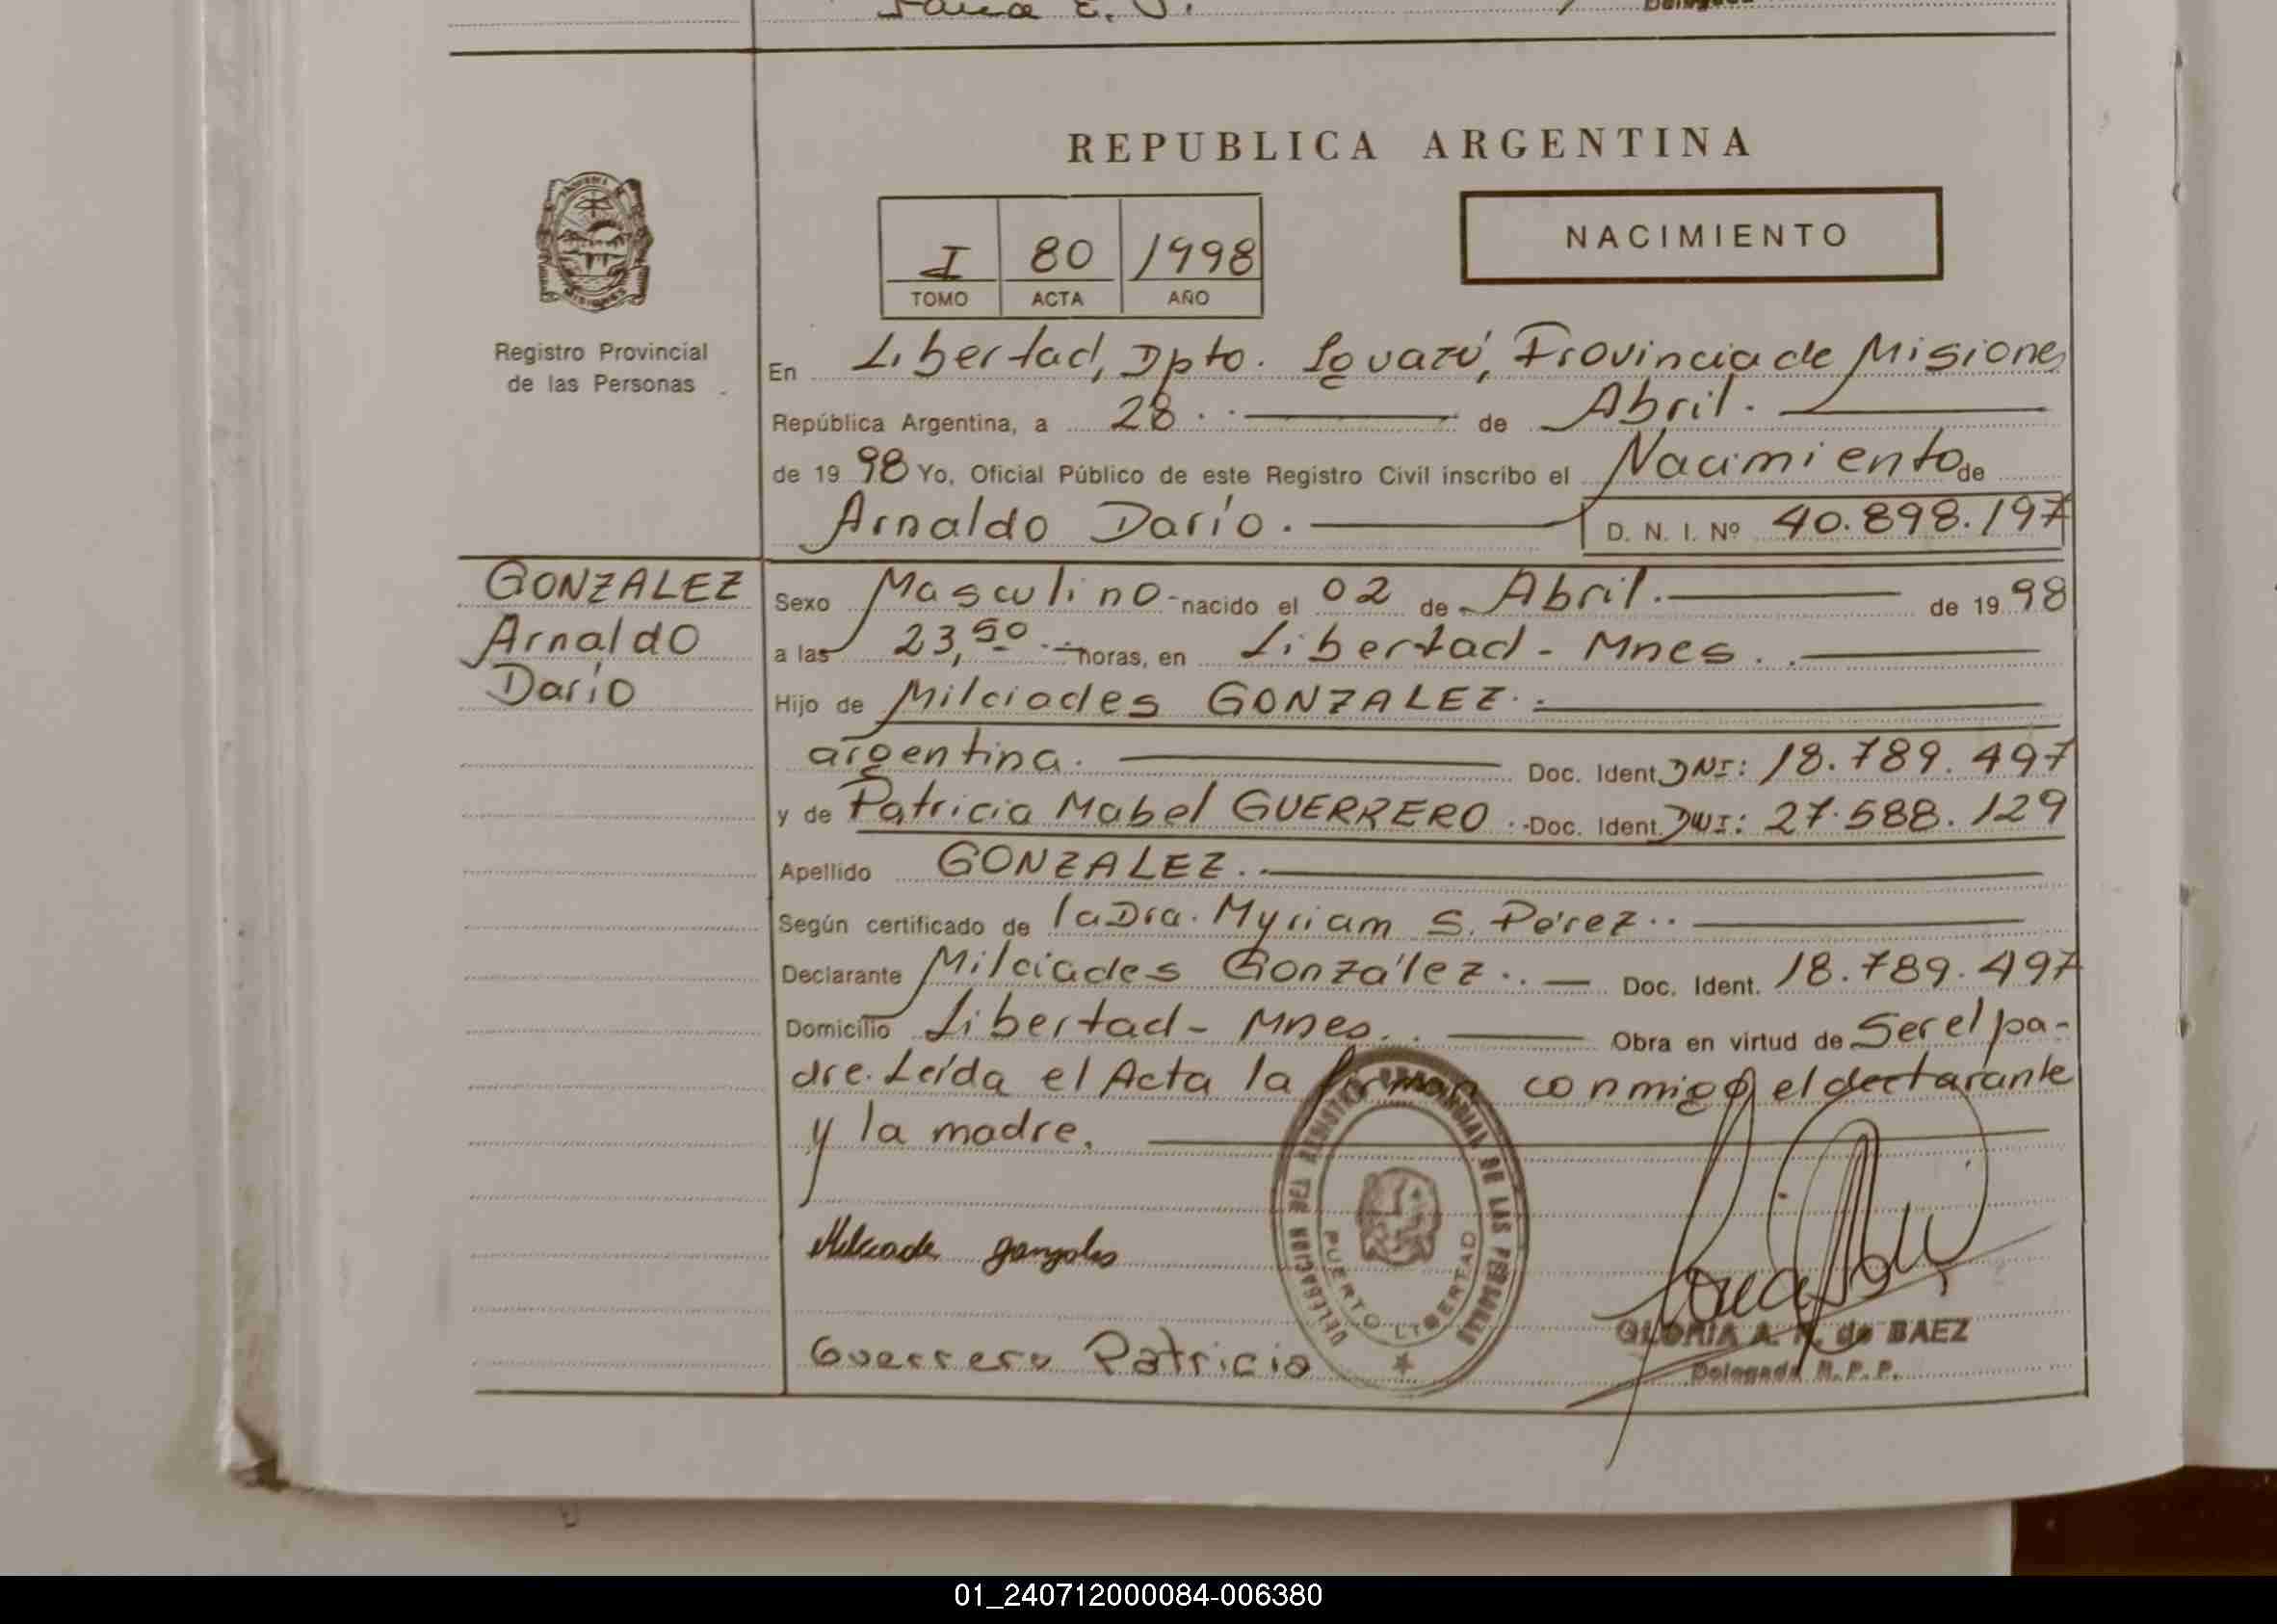 REPUBLICA ARGENTINA
I 80 1998
TOMO ACTA AÑO
NACIMIENTO
Registro Provincial
de las Personas
En Libertad, Dpto. Iguazú, Provincia de Misiones
República Argentina, a 28.. de Abril.
de 19 98 Yo, Oficial Público de este Registro Civil inscribo el Nacimiento de
Arnaldo Darío. D. N. I. Nº 40.898.197
GONZALEZ
Arnaldo
Darío
Sexo Masculino - nacido el 02 de Abril. de 19 98
a las 23,50 horas, en Libertad - Mnes.
Hijo de Milciades GONZALEZ.
argentina. Doc. Ident. DNI: 18.789.497
y de Patricia Mabel GUERRERO. Doc. Ident. DNI: 27.588.129
Apellido GONZALEZ.
Según certificado de la Dra. Myriam S. Pérez..
Declarante Milciades González. Doc. Ident. 18.789.497
Domicilio Libertad - Mnes. Obra en virtud de Ser el pa-
dre. Leída el Acta la firman conmigo el declarante
y la madre.
DELEGACION DEL REGISTRO PROVINCIAL DE LAS PERSONAS
PUERTO LIBERTAD
Milciade gonzales
Guerrero Patricia
GLORIA A. de BAEZ
Delegada R.P.P.
01_240712000084-006380